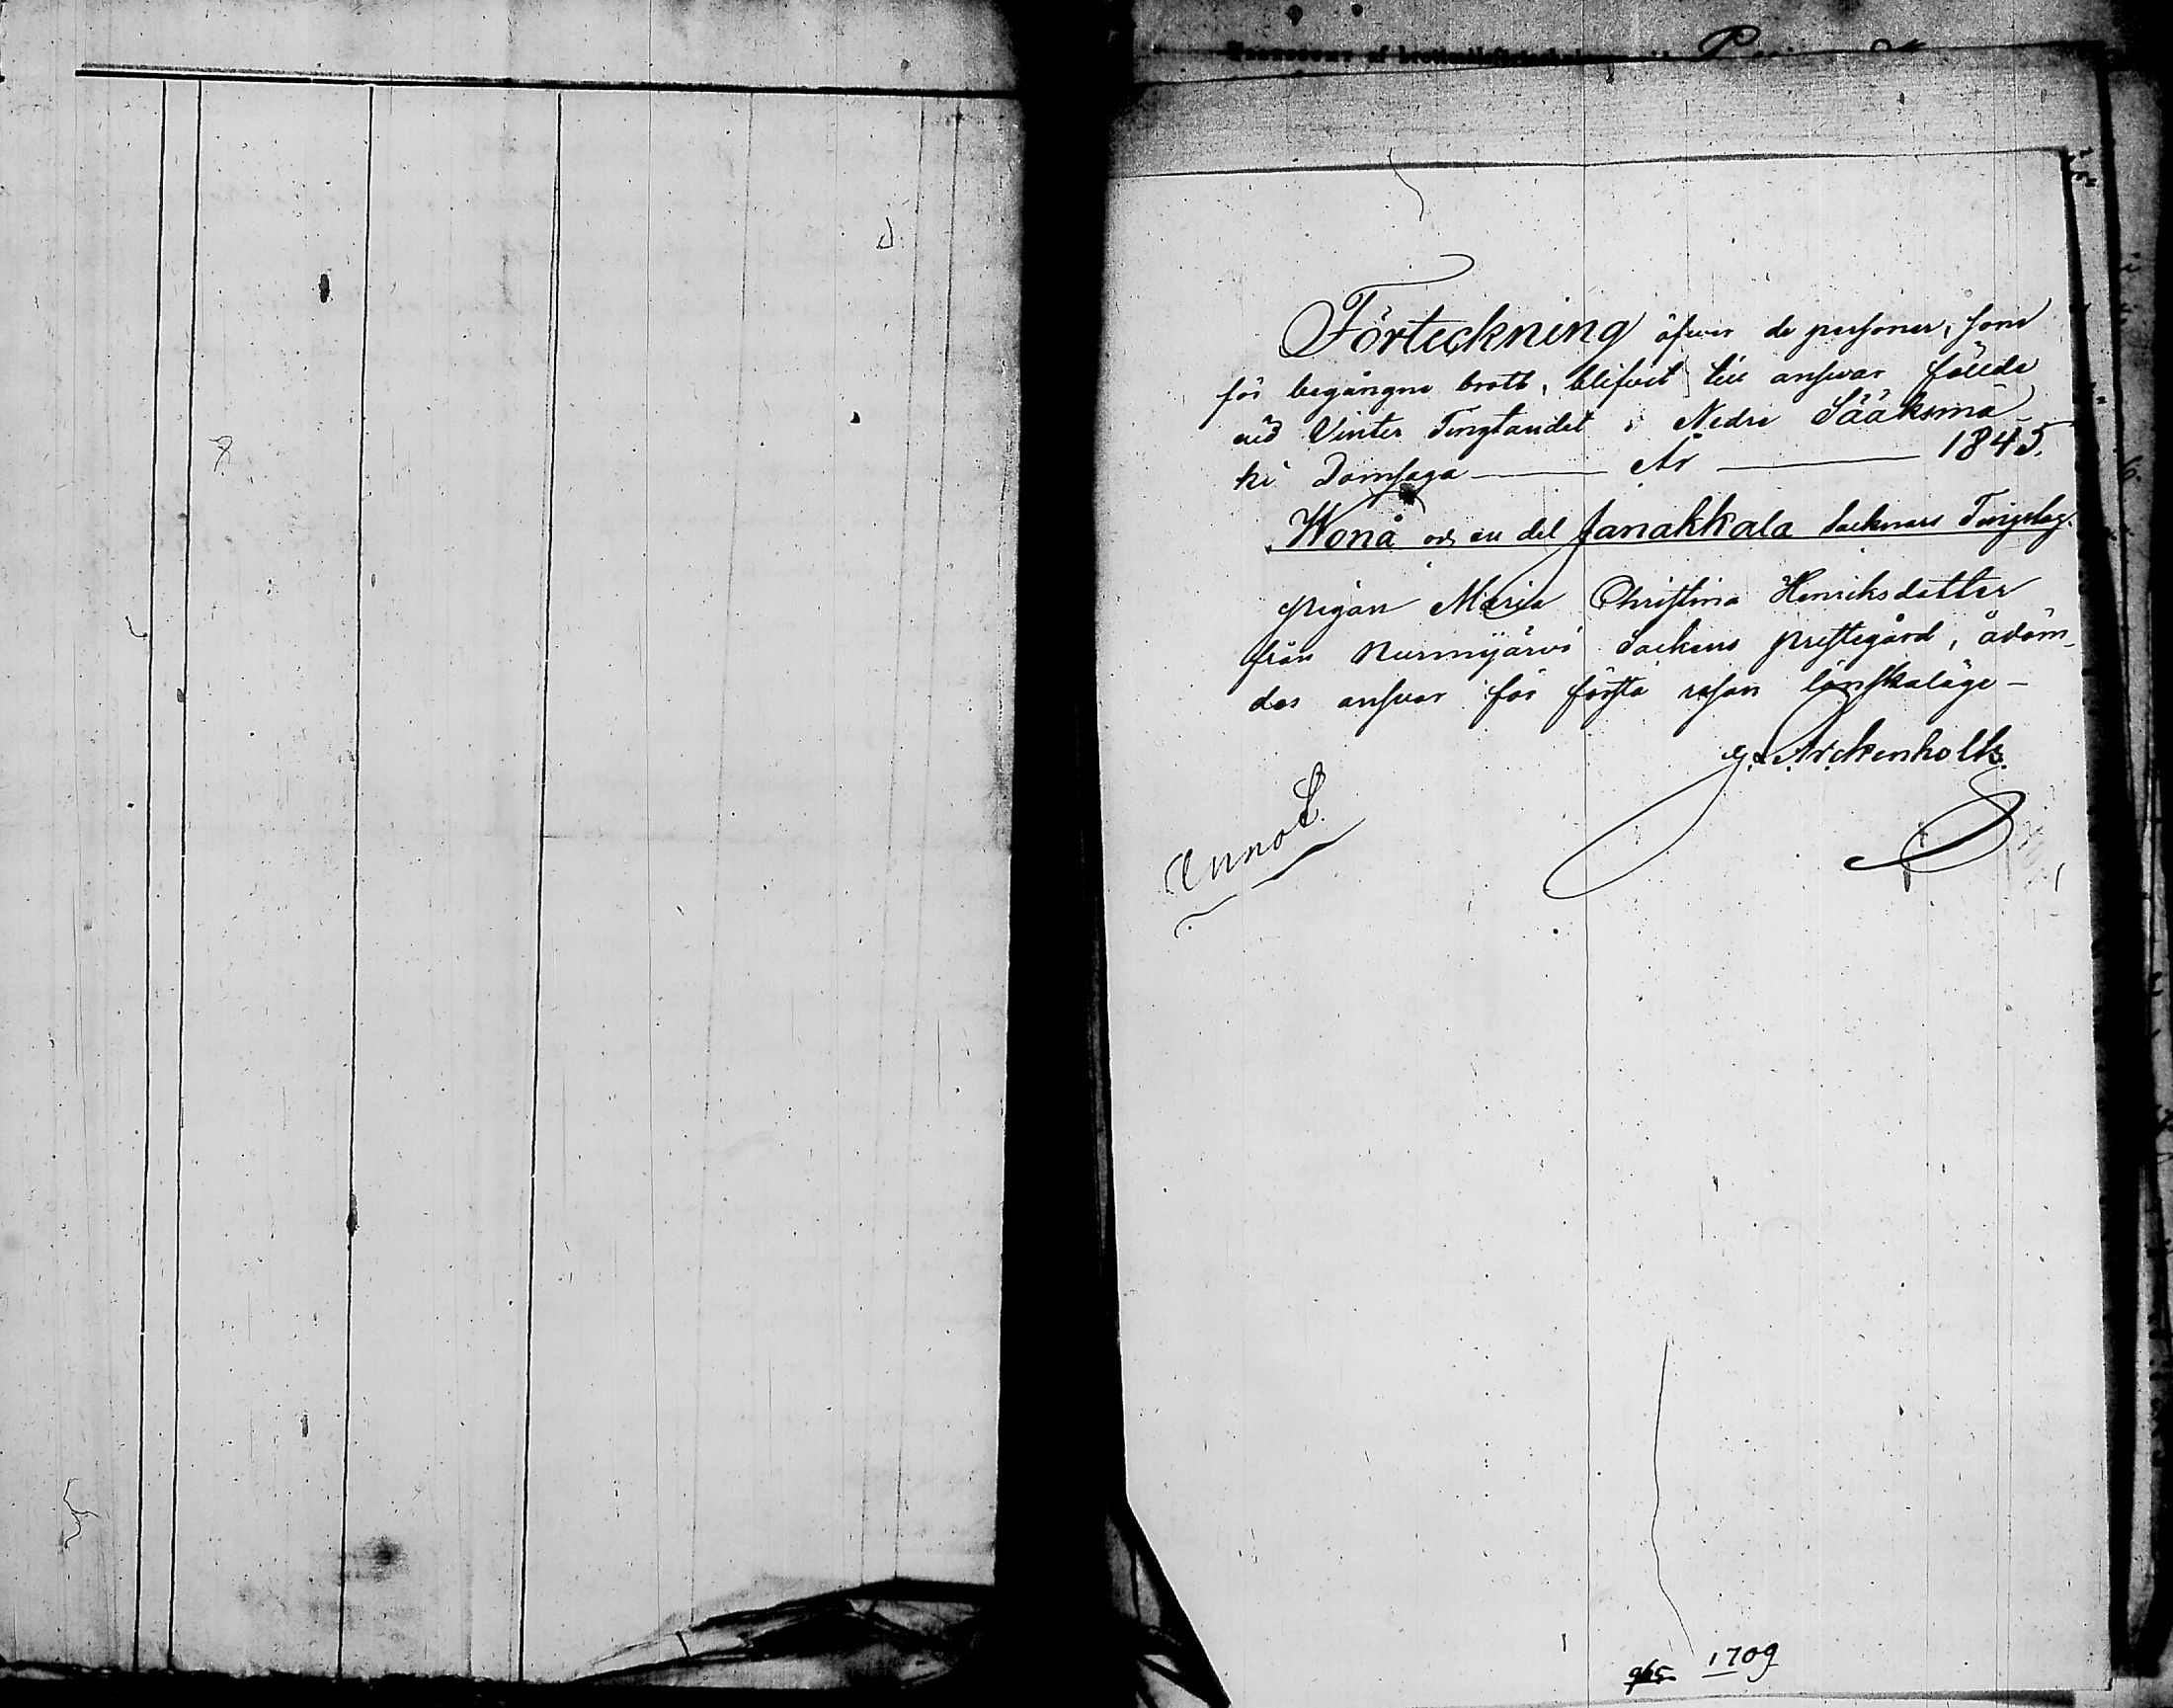 Förteckning öfwer de personer, som
för begångne brott, blifvit till answar fällde
vid Vinter Tingtandet i Nedre Sääksmä-
ki Domsaga — År — 1845.
Wonå och en del Janakkala Socknars Tingslag.
Pigan Maria Christina Henriksdotter
från Nurmijärvi Sockens prestegård, ådöm-
des answar för första resan lönskaläge —
G. Arckenholtz
965 1709